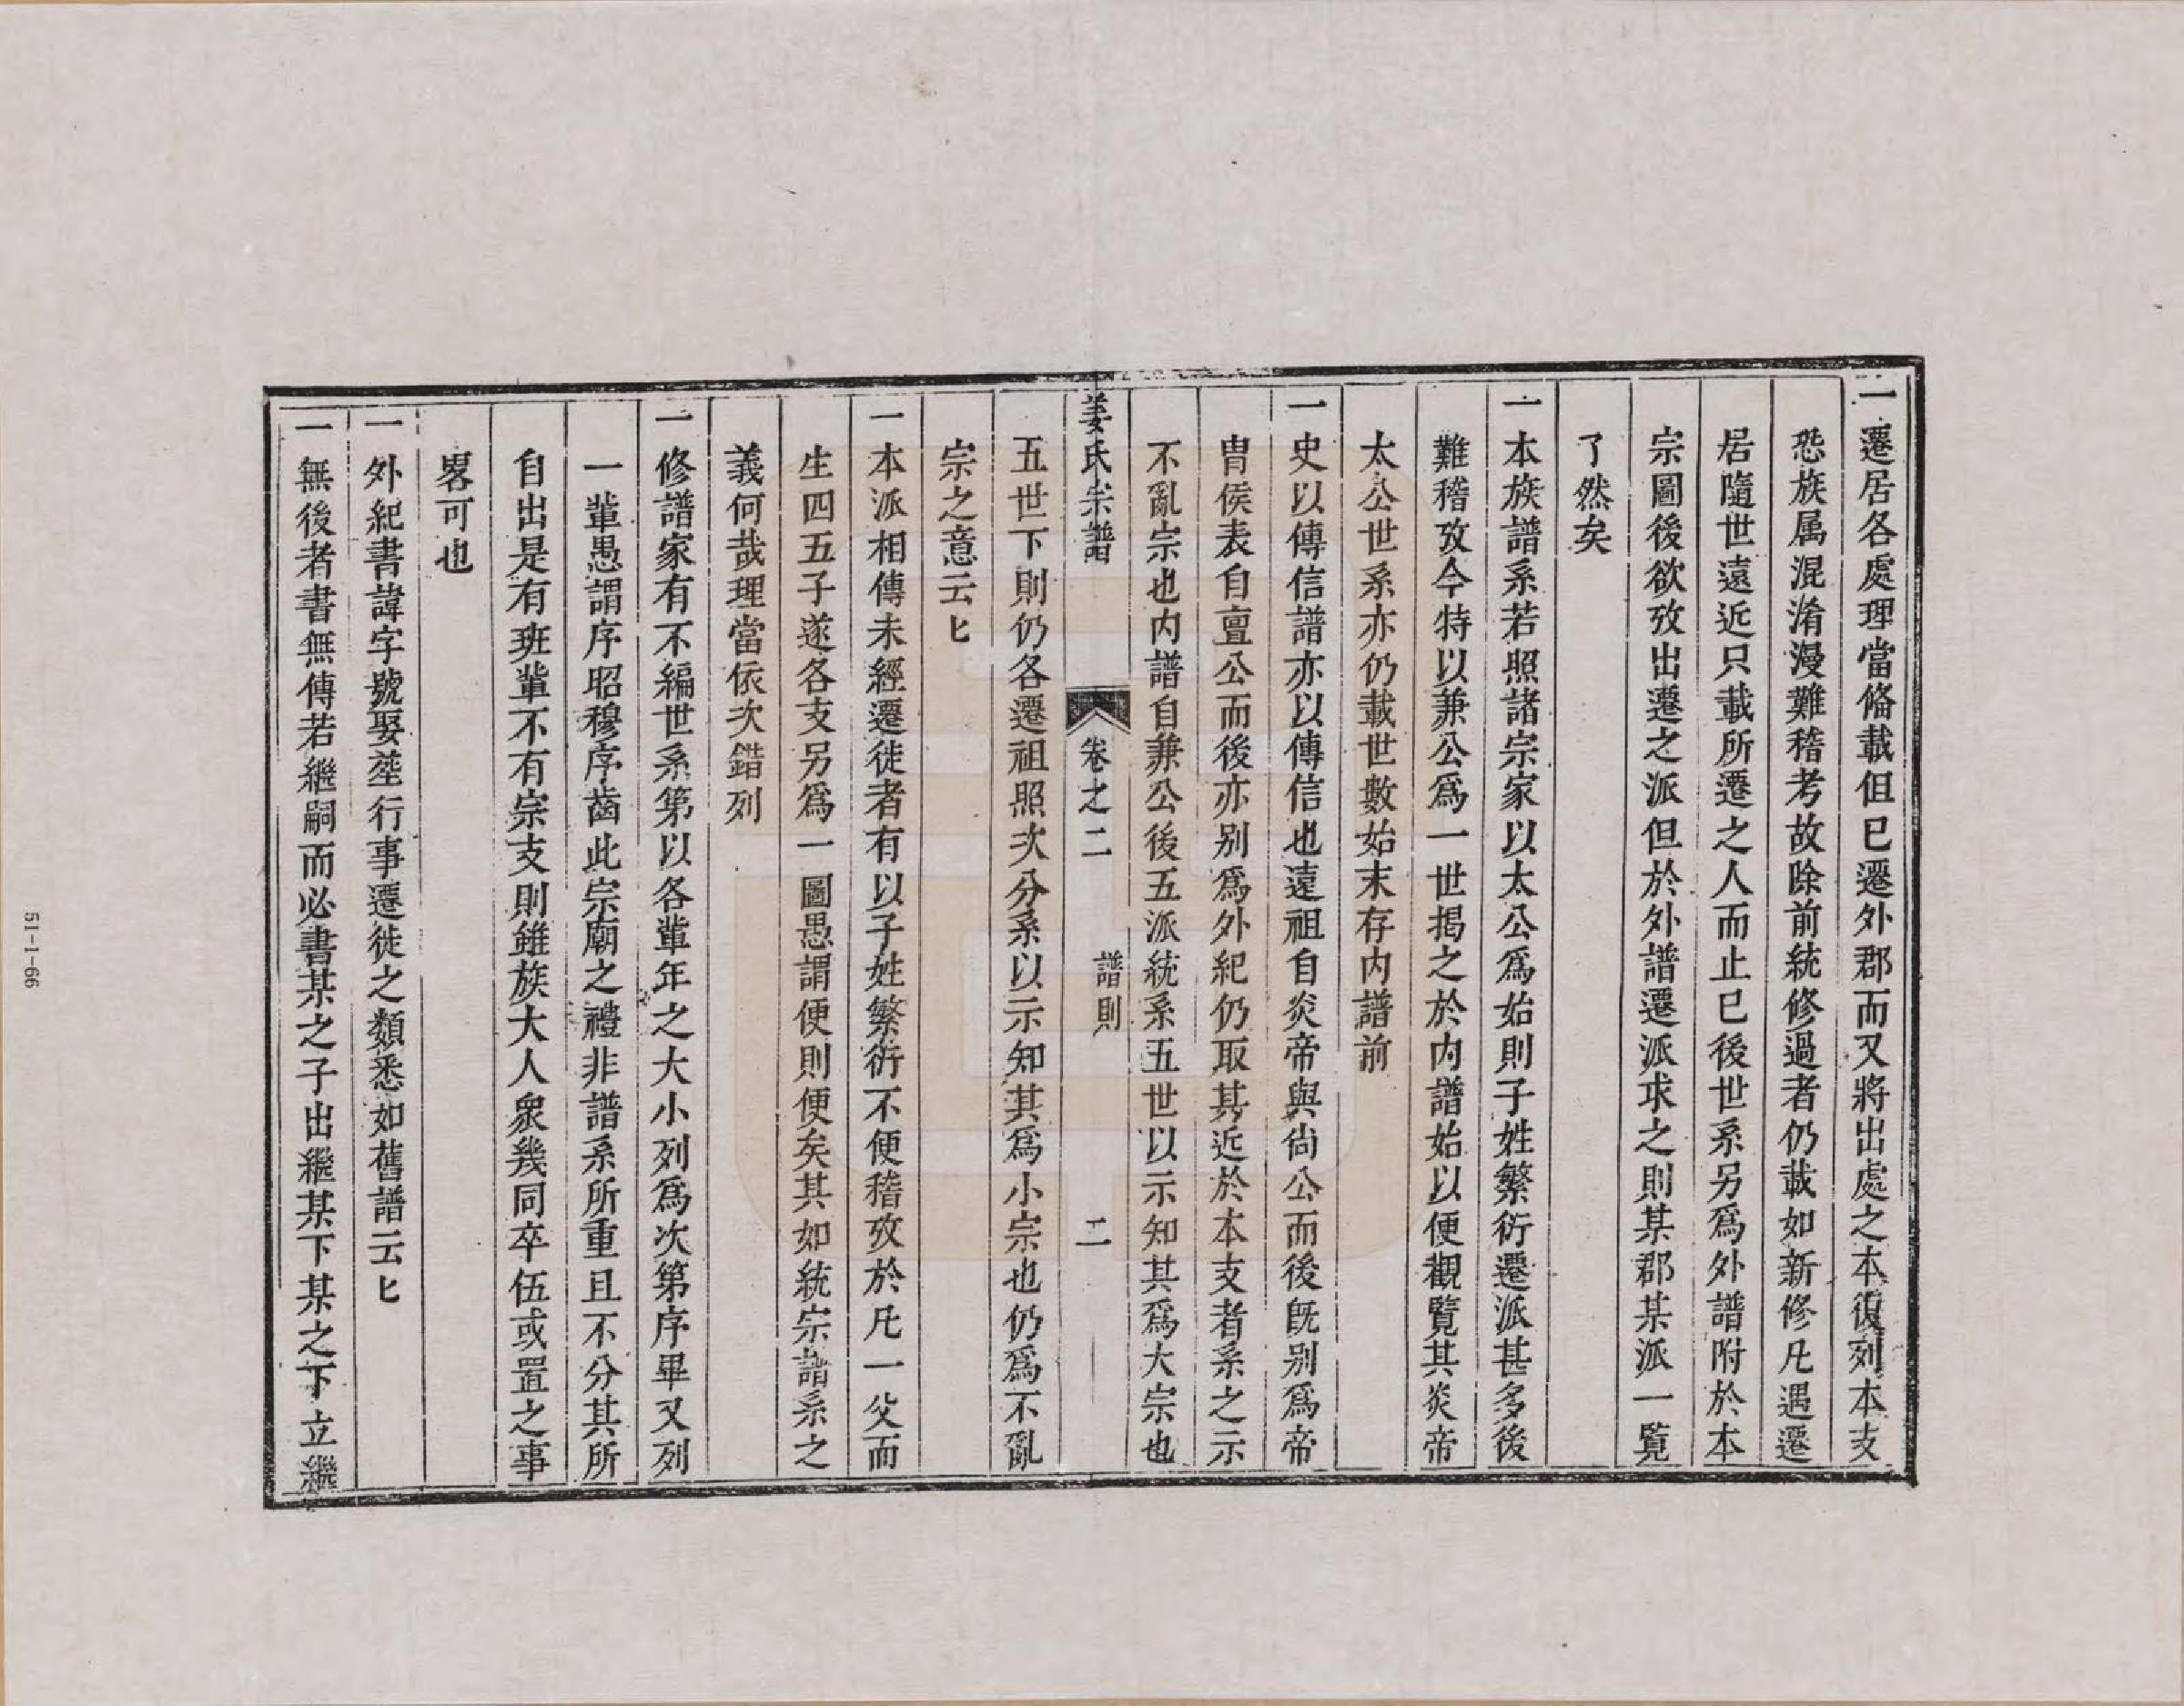 一遷居各處理當俻載但已遷外郡而又將出處之本復列本支
恐族属混淆漫難稽考故除前統修過者仍載如新修凡遇遷
居隨世遠近只載所遷之人而止已後世系另爲外譜附於本
宗圖後欲攷出遷之派但於外譜遷派求之則某郡某派一覧
了然矣
一本族譜系若照諸宗家以太公爲始則子姓繁衍遷派甚多後
難稽攷今特以兼公爲一世揭之於内譜始以便觀覧其炎帝
太公世系亦仍載世數始末存内譜前
一史以傳信譜亦以傳信也遠祖自炎帝與尙公而後旣别爲帝
胄侯表自亶公而後亦别爲外紀仍取其近於本支者系之示
不亂宗也内譜自兼公後五派統系五世以示知其爲大宗也
姜氏宗譜 卷之二 譜則 二
五世下則仍各遷祖照次分系以示知其爲小宗也仍爲不亂
宗之意云匕
一本派相傳未經遷徙者有以子姓繁衍不便稽攷於凡一父而
生四五子遂各支另爲一圖愚謂便則便矣其如統宗譜系之
義何哉理當依次錯列
一修譜家有不編世系第以各輩年之大小列爲次第序畢又列
一輩愚謂序昭穆序齒此宗廟之禮非譜系所重且不分其所
自出是有班輩不有宗支則雖族大人衆幾同卒伍或置之事
畧可也
一外紀書諱字號娶塟行事遷徙之類悉如舊譜云匕
一無後者書無傳若繼嗣而必書某之子出繼某下某之下立繼
51-1-66